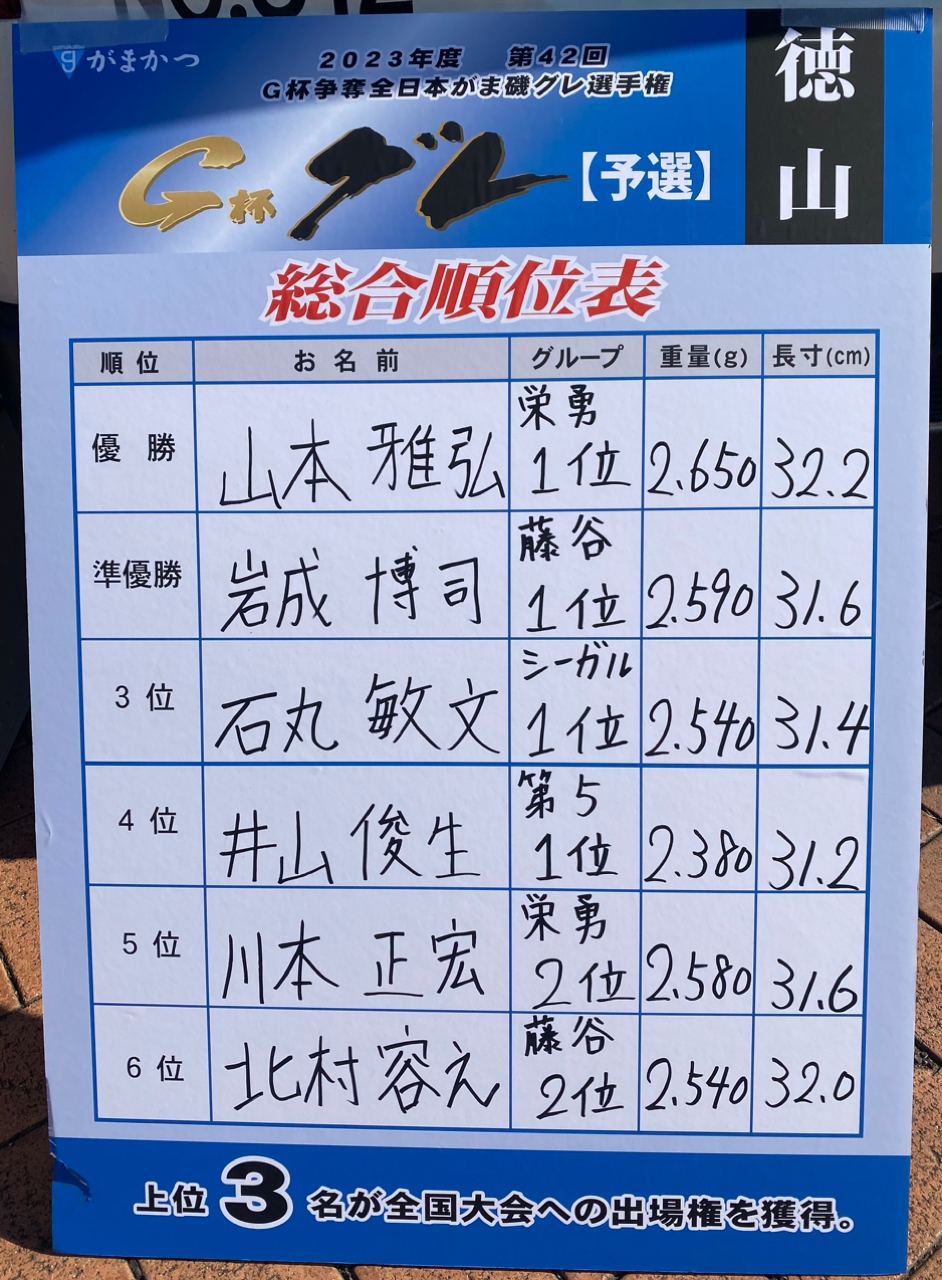 gamakatsu
がまかつ
2023年度 第42回
G杯争奪全日本がま磯グレ選手権
G杯グレ【予選】
徳山
総合順位表
順位 お名前 グループ 重量(g) 長寸(cm)
優勝 山本 雅弘 栄勇 1位 2.650 32.2
準優勝 岩成 博司 藤谷 1位 2.590 31.6
3位 石丸 敏文 シーガル 1位 2.540 31.4
4位 井山 俊生 第5 1位 2.380 31.2
5位 川本 正宏 栄勇 2位 2.580 31.6
6位 北村 容之 藤谷 2位 2.540 32.0
上位3名が全国大会への出場権を獲得。